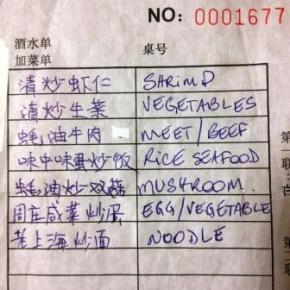 NO: 0001677
酒水单 桌号
加菜单
清炒虾仁 SHRIMP
清炒生菜 VEGETABLES
蚝油牛肉 MEET/BEEF
味中味蛋炒饭 RICE SEAFOOD
蚝油炒双菇 MUSHROOM.
周庄咸菜炒蛋 EGG/VEGETABLE
老上海炒面 NOODLE
第
联
第
联